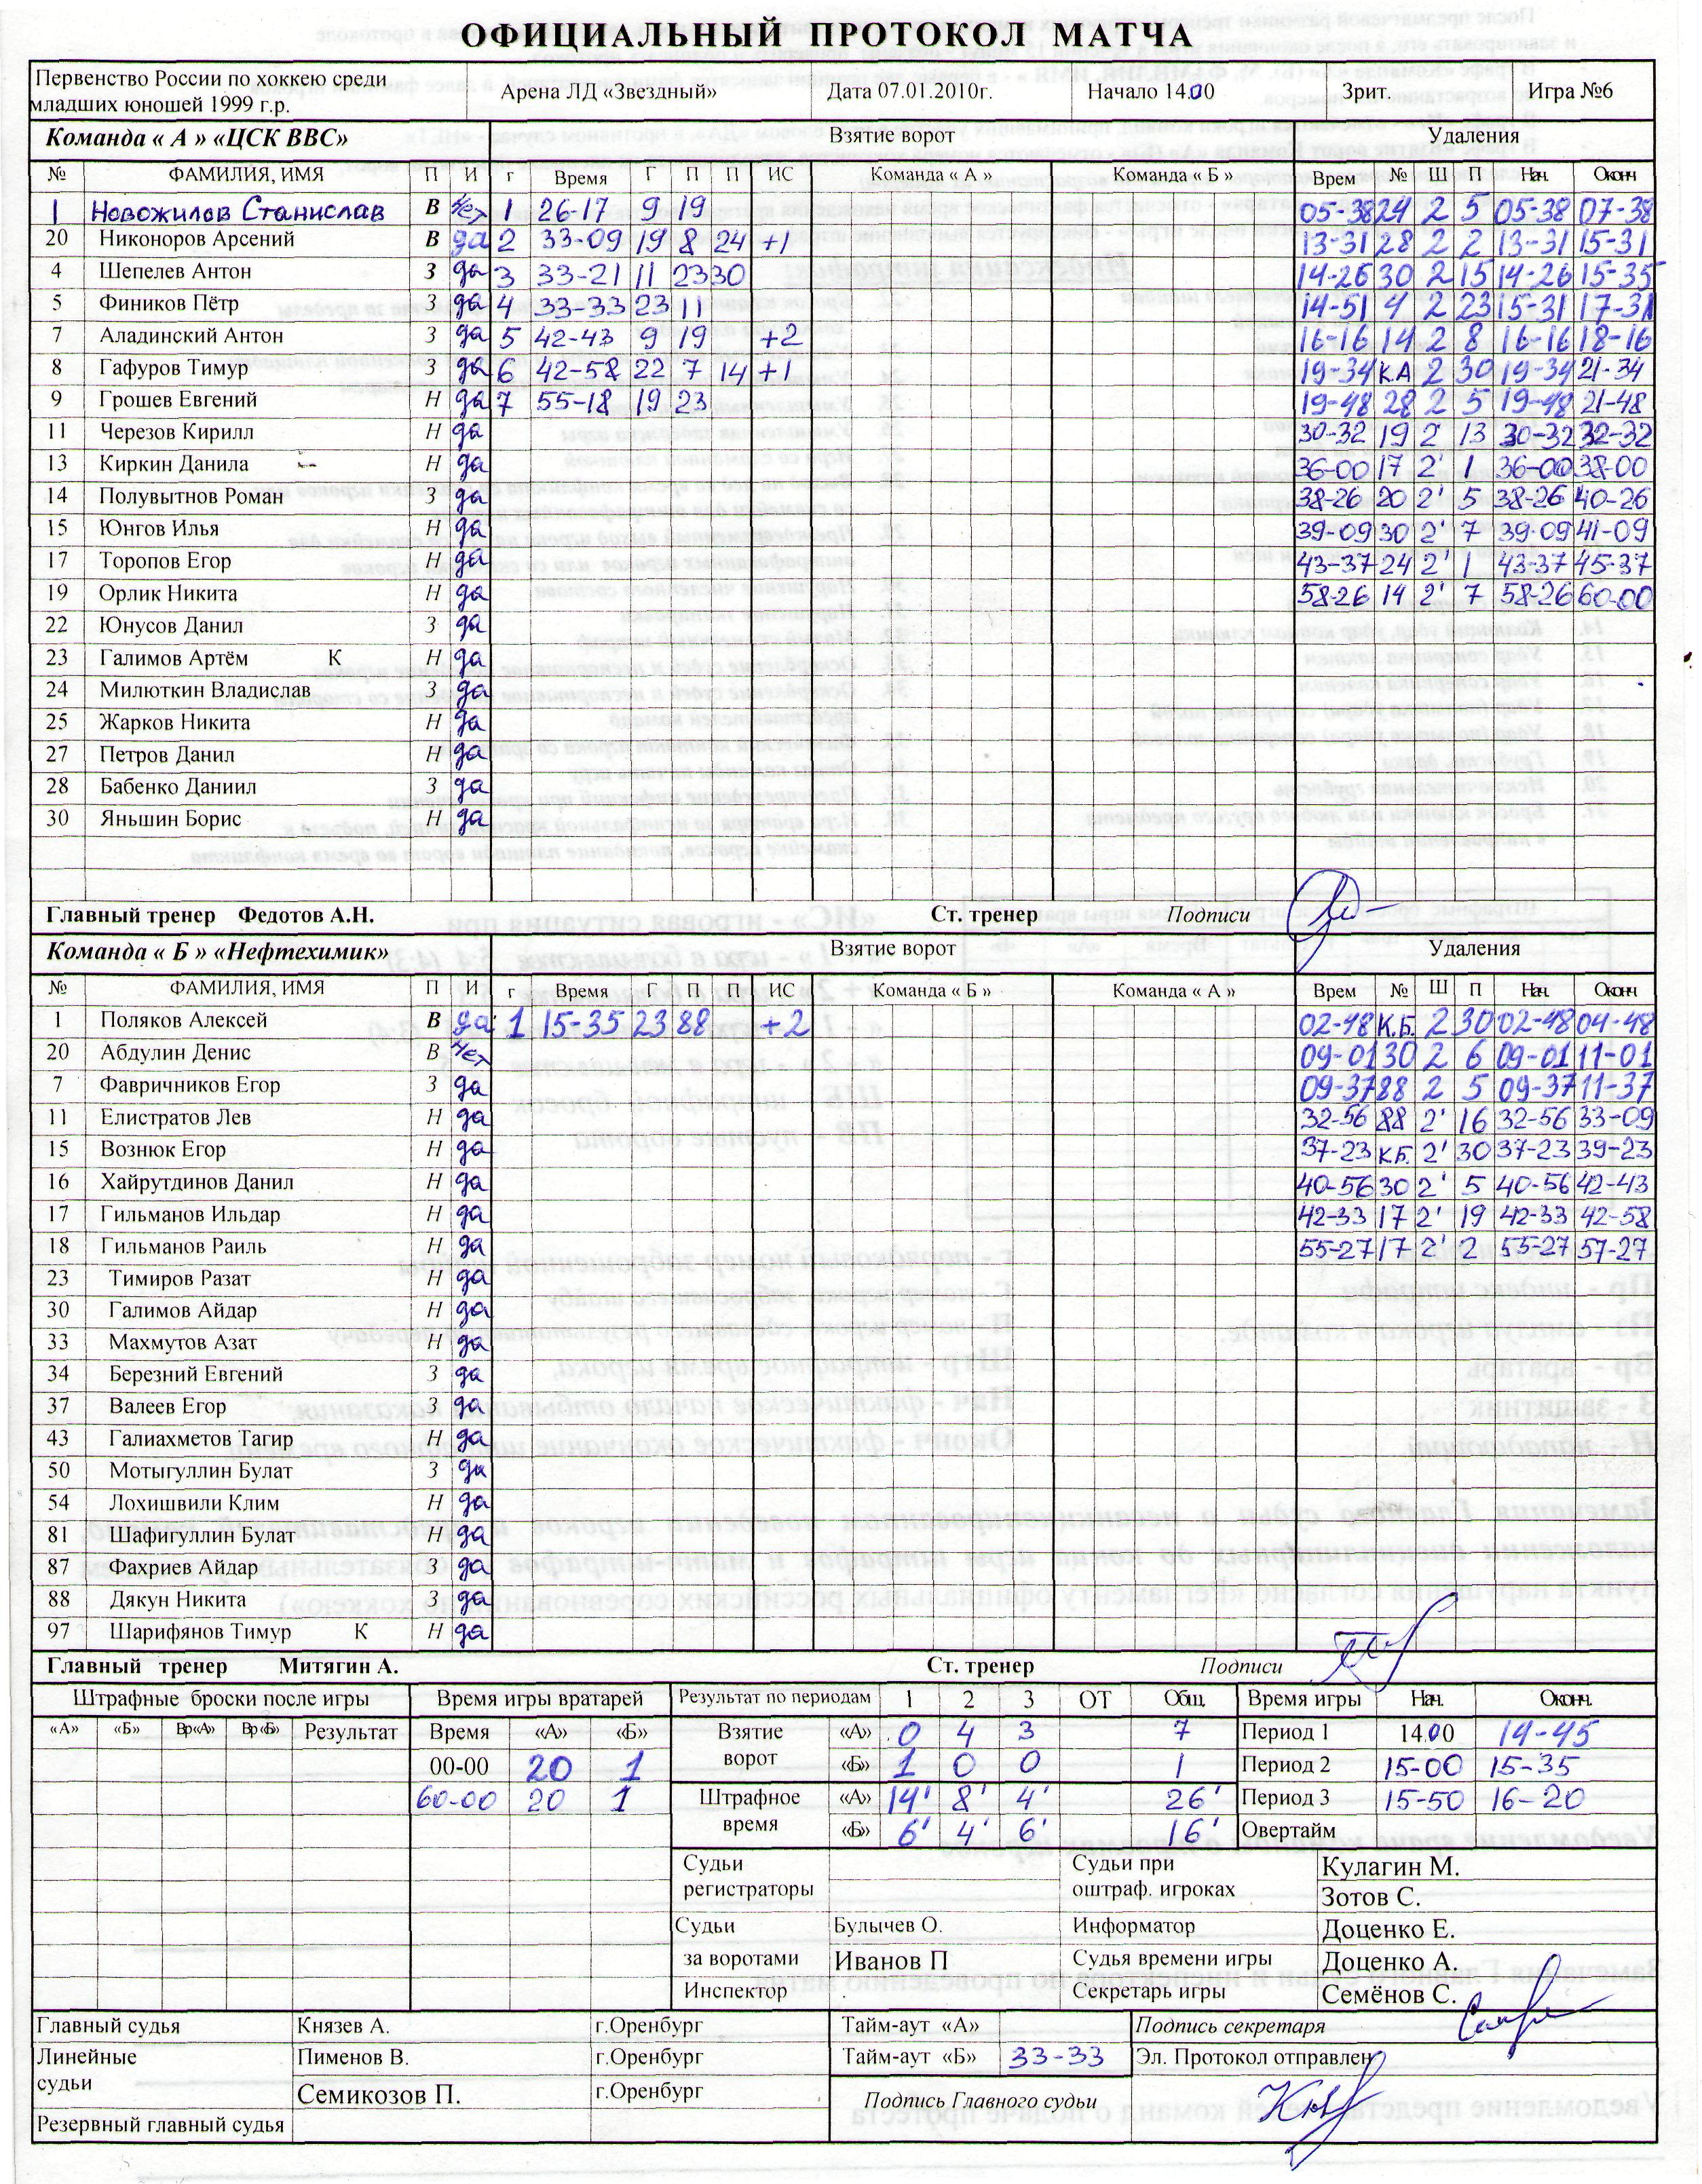 ОФИЦИАЛЬНЫЙ ПРОТОКОЛ МАТЧА
Первенство России по хоккею среди младших юношей 1999 г.р. Арена ЛД «Звездный» Дата 07.01.2010г. Начало 14.00 Зрит. Игра №6
Команда « А » «ЦСК ВВС» Взятие ворот Удаления
№ ФАМИЛИЯ, ИМЯ П И г Время Г П П ИС Команда « А » Команда « Б » Врем № Ш П Нач. Оконч
1 Новожилов Станислав В Нет 1 26-17 9 19 05-38 24 2 5 05-38 07-38
20 Никоноров Арсений В да 2 33-09 19 8 24 +1 13-31 28 2 2 13-31 15-31
4 Шепелев Антон З да 3 33-21 11 23 30 14-26 30 2 15 14-26 15-35
5 Фиников Пётр З да 4 33-33 23 11 14-51 4 2 23 15-31 17-31
7 Аладинский Антон З да 5 42-43 9 19 +2 16-16 14 2 8 16-16 18-16
8 Гафуров Тимур З да 6 42-58 22 7 14 +1 19-34 К.А 2 30 19-34 21-34
9 Грошев Евгений Н да 7 55-18 19 23 19-48 28 2 5 19-48 21-48
11 Черезов Кирилл Н да 30-32 19 2' 13 30-32 32-32
13 Киркин Данила Н да 36-00 17 2' 1 36-00 38-00
14 Полувытнов Роман З да 38-26 20 2' 5 38-26 40-26
15 Юнгов Илья Н да 39-09 30 2' 7 39-09 41-09
17 Торопов Егор Н да 43-37 24 2' 1 43-37 45-37
19 Орлик Никита Н да 58-26 14 2' 7 58-26 60-00
22 Юнусов Данил З да
23 Галимов Артём К Н да
24 Милюткин Владислав З да
25 Жарков Никита Н да
27 Петров Данил Н да
28 Бабенко Даниил З да
30 Яньшин Борис Н да
Главный тренер Федотов А.Н. Ст. тренер Подписи
Команда « Б » «Нефтехимик» Взятие ворот Удаления
№ ФАМИЛИЯ, ИМЯ П И г Время Г П П ИС Команда « Б » Команда « А » Врем № Ш П Нач. Оконч
1 Поляков Алексей В да 1 15-35 23 88 +2 02-48 К.Б. 2 30 02-48 04-48
20 Абдулин Денис В Нет 09-01 30 2 6 09-01 11-01
7 Фавричников Егор З да 09-37 88 2 5 09-37 11-37
11 Елистратов Лев Н да 32-56 88 2' 16 32-56 33-09
15 Вознюк Егор Н да 37-23 К.Б. 2' 30 37-23 39-23
16 Хайрутдинов Данил Н да 40-56 30 2' 5 40-56 42-43
17 Гильманов Ильдар Н да 42-33 17 2' 19 42-33 42-58
18 Гильманов Раиль Н да 55-27 17 2' 2 55-27 57-27
23 Тимиров Разат Н да
30 Галимов Айдар Н да
33 Махмутов Азат Н да
34 Березний Евгений З да
37 Валеев Егор З да
43 Галиахметов Тагир Н да
50 Мотыгуллин Булат З да
54 Лохишвили Клим Н да
81 Шафигуллин Булат Н да
87 Фахриев Айдар З да
88 Дякун Никита З да
97 Шарифянов Тимур К Н да
Главный тренер Митягин А. Ст. тренер Подписи
Штрафные броски после игры Время игры вратарей Результат по периодам 1 2 3 ОТ Общ. Время игры Нач. Оконч.
«А» «Б» Вр«А» Вр«Б» Результат Время «А» «Б» Взятие ворот «А» 0 4 3 7 Период 1 14.00 14-45
00-00 20 1 «Б» 1 0 0 1 Период 2 15-00 15-35
60-00 20 1 Штрафное время «А» 14' 8' 4' 26' Период 3 15-50 16-20
«Б» 6' 4' 6' 16' Овертайм
Судьи регистраторы Судьи при оштраф. игроках Кулагин М.
Зотов С.
Судьи Булычев О. Информатор Доценко Е.
за воротами Иванов П Судья времени игры Доценко А.
Инспектор Секретарь игры Семёнов С.
Главный судья Князев А. г.Оренбург Тайм-аут «А» Подпись секретаря
Линейные судьи Пименов В. г.Оренбург Тайм-аут «Б» 33-33 Эл. Протокол отправлен
Семикозов П. г.Оренбург Подпись Главного судьи
Резервный главный судья